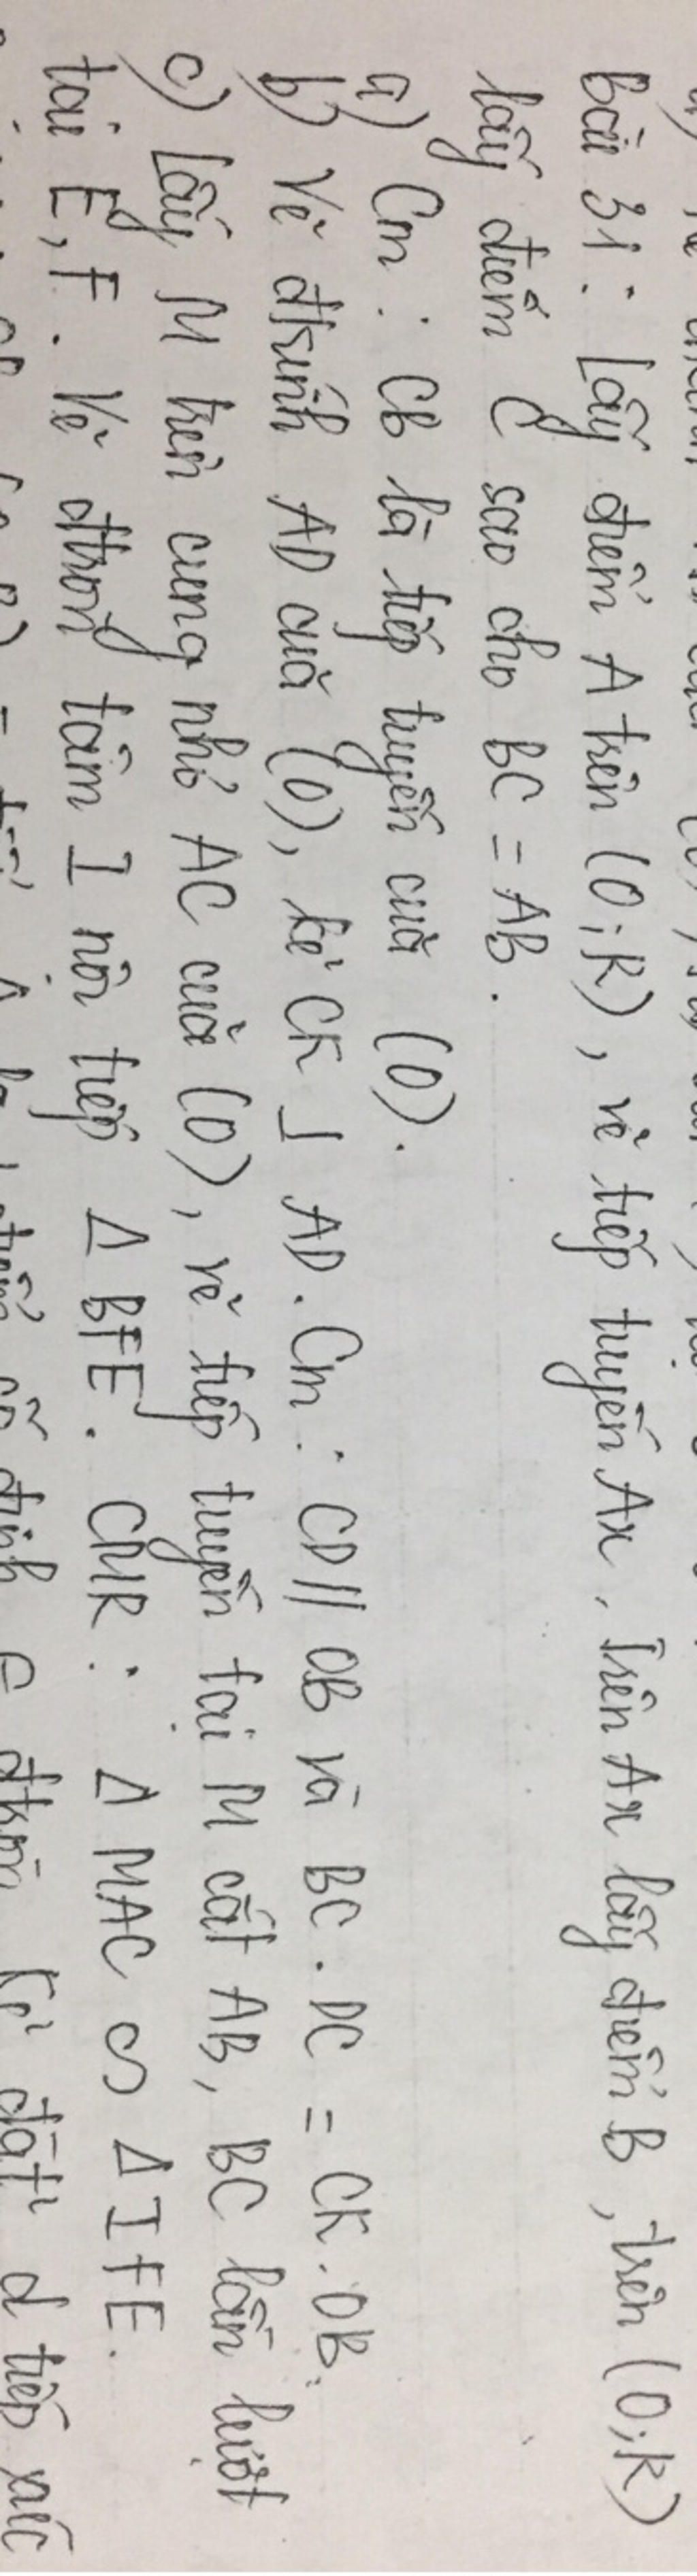 bài 31: Lấy điểm A trên (O;R), vẽ tiếp tuyến Ax, Trên Ax lấy điểm B, trên (O;R)
lấy điểm C sao cho BC = AB.
a) Cm: CB là tiếp tuyến của (O).
b) Vẽ đkính AD của (O), kẻ CK ⊥ AD. Cm: CD // OB và BC . DC = CK . OB.
c) Lấy M trên cung nhỏ AC của (O), vẽ tiếp tuyến tại M cắt AB, BC lần lượt
tại E, F. Vẽ đtron tâm I nội tiếp Δ BFE. CMR: Δ MAC ∽ Δ IFE.
d tiếp xúc